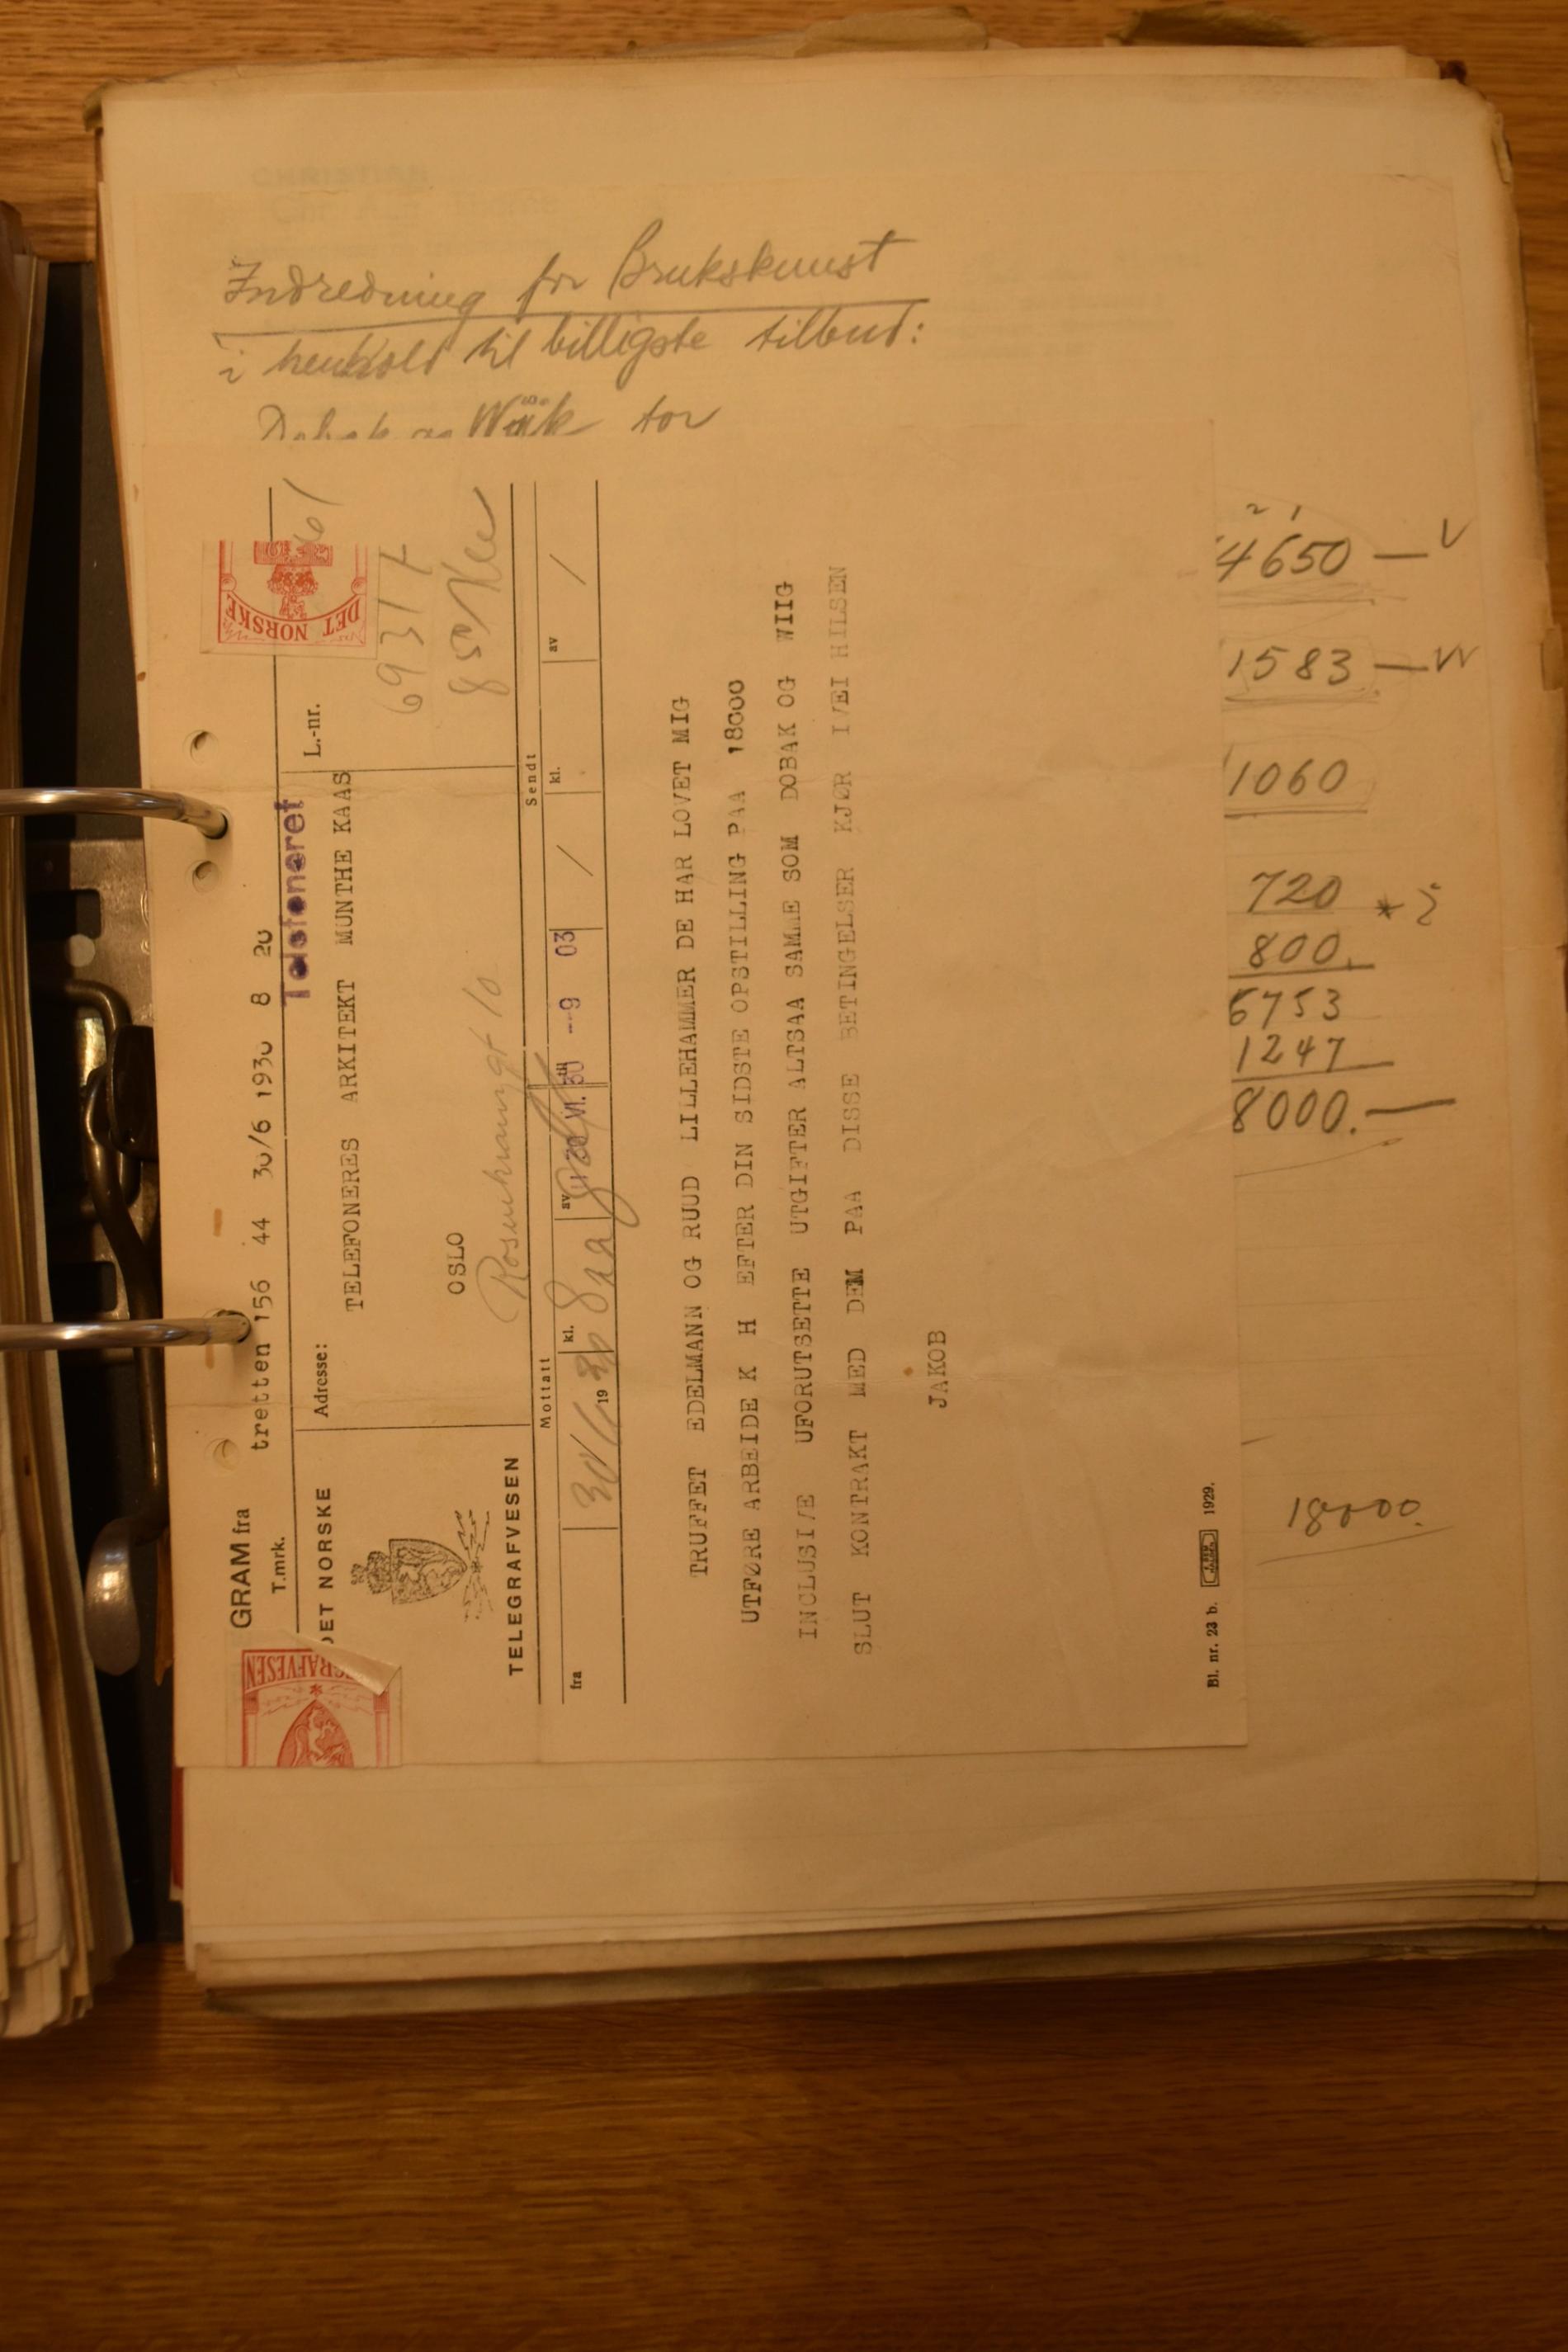 Indredning for Brukskunst
i henhold til billigste tilbud:
for
4650 —
1583 —
1060
720
800.
1247
8000.—
18000.
GRAM fra
tretten 156 44 30/6 1930 8 20
T.mrk.
Telefoneret
DET NORSKE
TELEGRAFVESEN
Adresse:
TELEFONERES ARKITEKT MUNTHE KAAS
OSLO
Rosenkrantzgt 10
L.-nr.
DET NORSKE
69317
Mottatt
Sendt
fra
19
kl.
av
kl.
av
VI. 30 --9 03
TRUFFET EDELMANN OG RUUD LILLEHAMMER DE HAR LOVET MIG
UTFØRE ARBEIDE K H EFTER DIN SIDSTE OPSTILLING PAA 18000
INCLUSI/E UFORUTSETTE UTGIFTER ALTSAA SAMME SOM DOBAK OG WIIG
SLUT KONTRAKT MED DEM PAA DISSE BETINGELSER KJØR I/EI HILSEN
JAKOB
Bl. nr. 23 b. 1929.